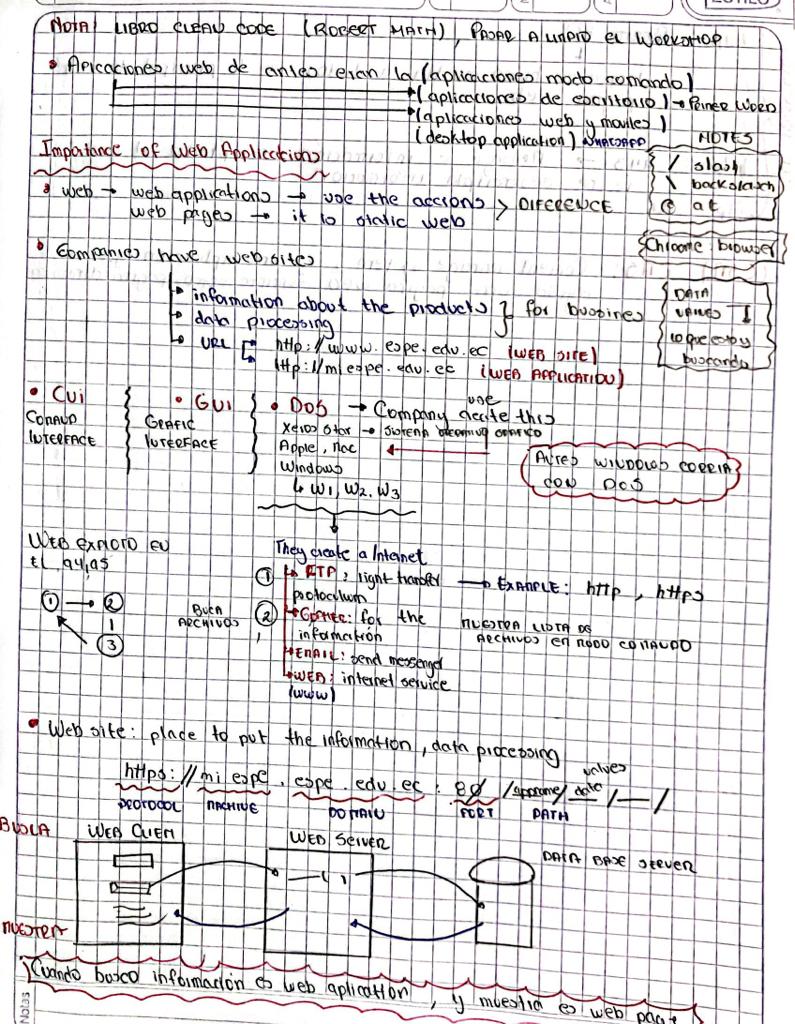 NOTA: LIBRO CLEAN CODE (ROBERT MATH), PASAR A LIMPIO EL WORKSHOP
• Apicaciones web de antes eran la (aplicaciones modo comando)
(aplicaciones de escritorio) → Peiner WORD
(aplicaciones web y moviles)
(desktop application) WHATSAPP
NOTES
/ slash
\ backslasch
@ at
Importance of Web Applications
• web → web applications → use the accions > DIFERENCE
web pages → it is static web
Chroome browser
• Companies have web sites
→ information about the products } for bussines
→ data processing
→ URL [ http://www.espe.edu.ec (WEB SITE)
http://miespe.edu.ec (WEB APPLICATION)
DATA
VALUES
lo que estoy
buscando
• CUI
COMAND
INTERFACE
• GUI
GRAFIC
INTERFACE
• DOS → Company create this
use
Xerox star → SISTEMA OPERATIVO GRAFICO
Apple, mac
Windows
↳ W1, W2, W3
ANTES WINDOWS CORRIA
CON DOS
WEB EXPLOTO EN
EL 94,95
① → ②
③
They create a Internet
① → FTP: light transfer → EXAMPLE: http, https
protocolum
BUSCA
ARCHIVOS
② → GOPHER: for the
information
MUESTRA LISTA DE
ARCHIVOS EN MODO COMANDO
→ EMAIL: send messenger
→ WEB: internet service
(www)
• Web site: place to put the information, data processing
values
https://mi espe.espe.edu.ec:80/appname/date/—/
PROTOCOL MACHINE DOMAIN PORT PATH
BUSCA
WEB CLIENT
WEB SERVER
DATA BASE SERVER
MUESTRA
Cuando busco información es web aplication, y muestra es web page
Notas